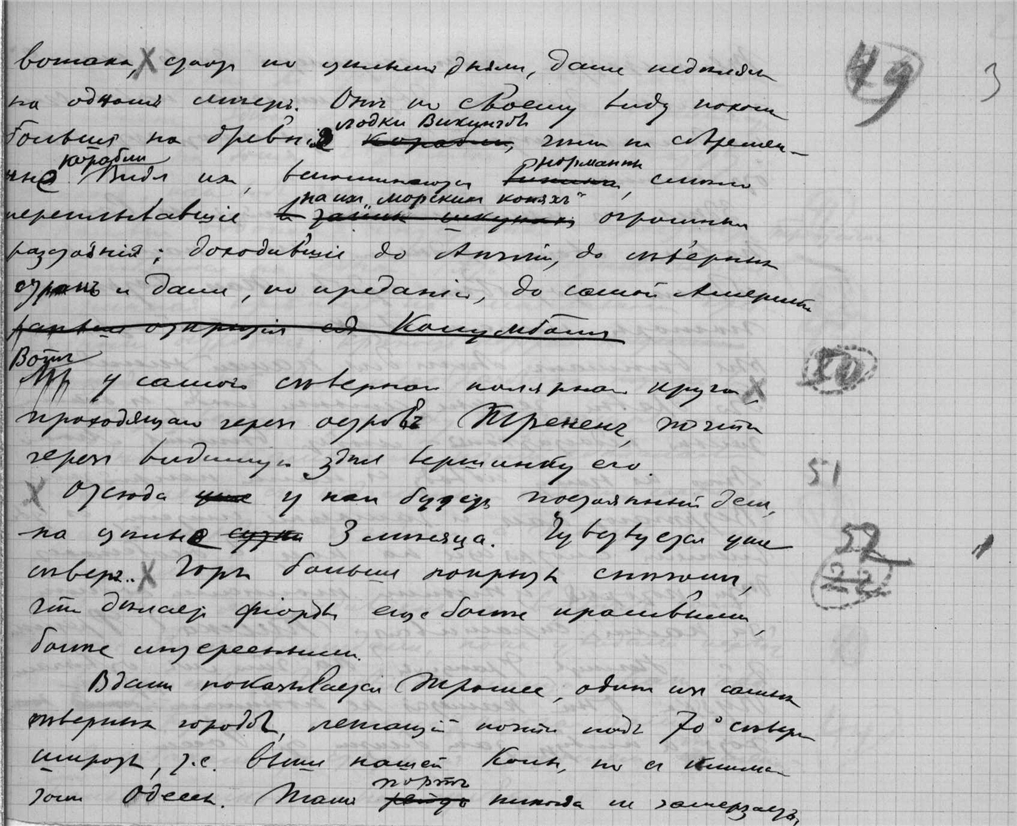 вотами, X стоя по цѣлымъ днямъ, даже недѣлямъ 49 3
на одномъ якорѣ. Онѣ по своему виду похожи
больше на древнiе лодки Викинговъ корабли, чѣмъ на современ-
ные корабли Видя ихъ, вспоминаются норманны, смѣло
переплывавшiе на ихъ „морскихъ коняхъ" огромныя
разстоянiя; доходившiе до Англiи, до сѣверныхъ
странъ и даже, по преданiю, до самой Америки
раньше открытiя ея Колумбомъ
Вотъ у самаго сѣвернаго полярнаго круга, X 50
проходящаго черезъ островъ Тρененъ, почти
через видимую здѣсь вершину его. 51
X Отсюда уже у насъ будетъ постоянный день,
на цѣлые сутки 3 мѣсяца. Чувствуется уже 52 1
сѣверъ.. X Горы больше покрыты снѣгомъ,
что дѣлаетъ фiорды еще болѣе красивыми,
болѣе интересными.
Вдали показывается Тромсе, одинъ изъ самыхъ
сѣверныхъ городовъ, лежащiй почти подъ 70° сѣвер
широты, т.е. выше нашей Колы, но съ климатомъ
Одессы. Тамъ портъ никогда не замерзаетъ,